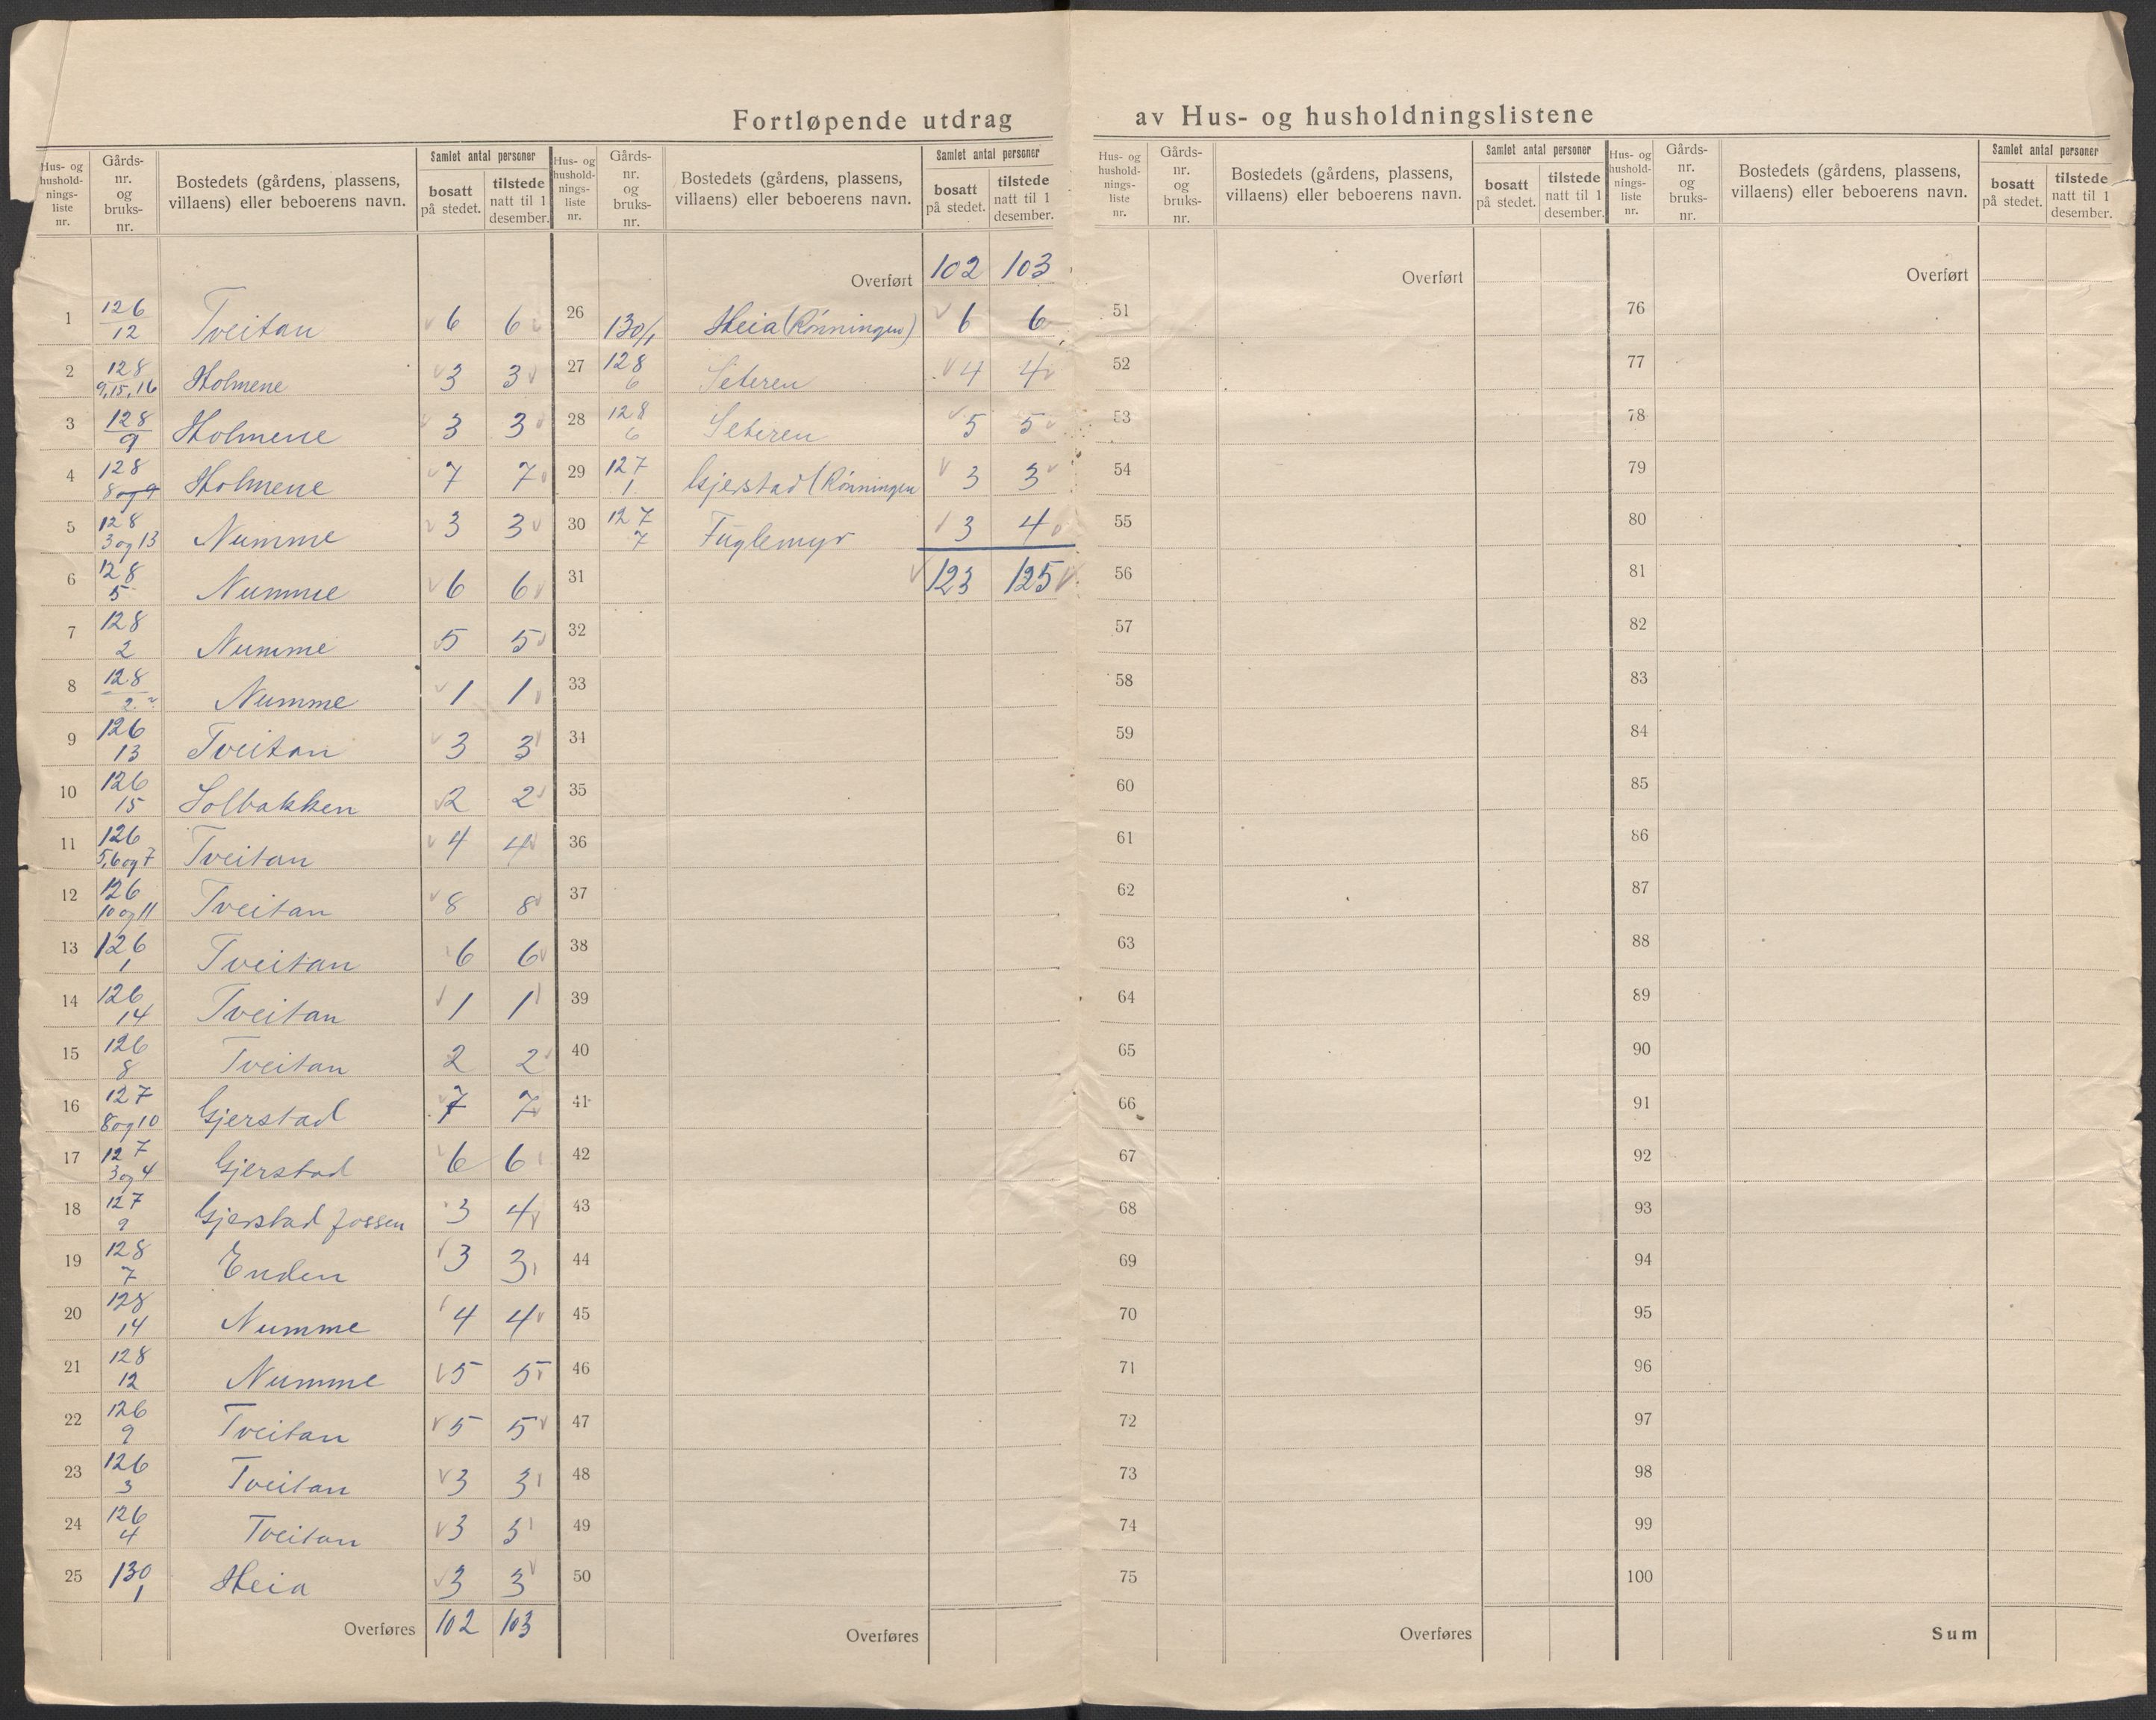 Fortløpende utdrag av Hus- og husholdningslistene
Hus- og hushold-nings-liste nr. | Gårds-nr. og bruks-nr. | Bostedets (gårdens, plassens, villaens) eller beboerens navn. | Samlet antal personer | bosatt på stedet. | tilstede natt til 1 desember.
1 | 126/12 | Tveitan | 6 | 6
2 | 128/9,15,16 | Holmene | 3 | 3
3 | 128/9 | Holmene | 3 | 3
4 | 128/8 og 9 | Holmene | 7 | 7
5 | 128/3 og 13 | Numme | 3 | 3
6 | 128/5 | Numme | 6 | 6
7 | 128/2 | Numme | 5 | 5
8 | 128/2 | Numme | 1 | 1
9 | 126/13 | Tveitan | 3 | 3
10 | 126/15 | Solbakken | 2 | 2
11 | 126/5,6 og 7 | Tveitan | 4 | 4
12 | 126/10 og 11 | Tveitan | 8 | 8
13 | 126/1 | Tveitan | 6 | 6
14 | 126/14 | Tveitan | 1 | 1
15 | 126/8 | Tveitan | 2 | 2
16 | 127/8 og 10 | Gjerstad | 7 | 7
17 | 127/3 og 4 | Gjerstad | 6 | 6
18 | 127/9 | Gjerstad fossen | 3 | 4
19 | 128/7 | Enden | 3 | 3
20 | 128/14 | Numme | 4 | 4
21 | 128/12 | Numme | 5 | 5
22 | 126/9 | Tveitan | 5 | 5
23 | 126/3 | Tveitan | 3 | 3
24 | 126/4 | Tveitan | 3 | 3
25 | 130/1 | Heia | 3 | 3
Overføres | 102 | 103
Hus- og hushold-nings-liste nr. | Gårds-nr. og bruks-nr. | Bostedets (gårdens, plassens, villaens) eller beboerens navn. | Samlet antal personer | bosatt på stedet. | tilstede natt til 1 desember.
Overført | 102 | 103
26 | 130/1 | Heia (Rønningen) | 6 | 6
27 | 128/6 | Seteren | 4 | 4
28 | 128/6 | Seteren | 5 | 5
29 | 127/1 | Gjerstad (Rønningen | 3 | 3
30 | 127/7 | Fuglemyr | 3 | 4
31 | 123 | 125
32
33
34
35
36
37
38
39
40
41
42
43
44
45
46
47
48
49
50
Overføres
Hus- og hushold-nings-liste nr. | Gårds-nr. og bruks-nr. | Bostedets (gårdens, plassens, villaens) eller beboerens navn. | Samlet antal personer | bosatt på stedet. | tilstede natt til 1 desember.
Overført
51
52
53
54
55
56
57
58
59
60
61
62
63
64
65
66
67
68
69
70
71
72
73
74
75
Overføres
Hus- og hushold-nings-liste nr. | Gårds-nr. og bruks-nr. | Bostedets (gårdens, plassens, villaens) eller beboerens navn. | Samlet antal personer | bosatt på stedet. | tilstede natt til 1 desember.
Overført
76
77
78
79
80
81
82
83
84
85
86
87
88
89
90
91
92
93
94
95
96
97
98
99
100
Sum